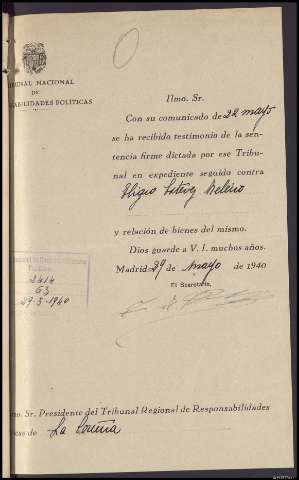 BUNAL NACIONAL
DE
ABILIDADES POLÍTICAS
Ilmo. Sr.
Con su comunicado de 22 mayo
se ha recibido testimonio de la sen-
tencia firme dictada por ese Tribu-
nal en expediente seguido contra
Eligio Estevez
y relación de bienes del mismo.
Dios guarde a V. I. muchos años.
Madrid 29 de mayo de 1940
El Secretario,
Responsabilidades
Políticas
2414
63
29-5-1940
lmo. Sr. Presidente del Tribunal Regional de Responsabilidades
icas de La Coruña